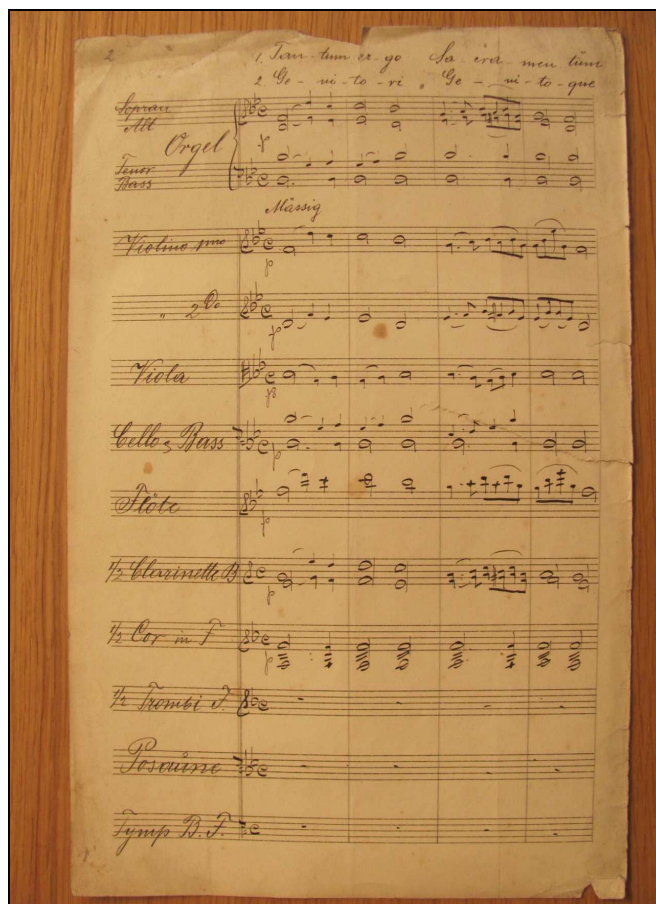 2
1. Tan-tum er-go Sa-cra-men tüm
2. Ge-ni-to-ri, Ge-ni-to-que
Sopran
Alt
Orgel
Tenor
Bass
p
Mässig
Violino pmo
p
" 2do
p
Viola
p
Cello & Bass
p
Flöte
p
1/2 Clarinette B
p
1/2 Cor in F
p
1/2 Trombi F.
Posaune
Tymp B. F.